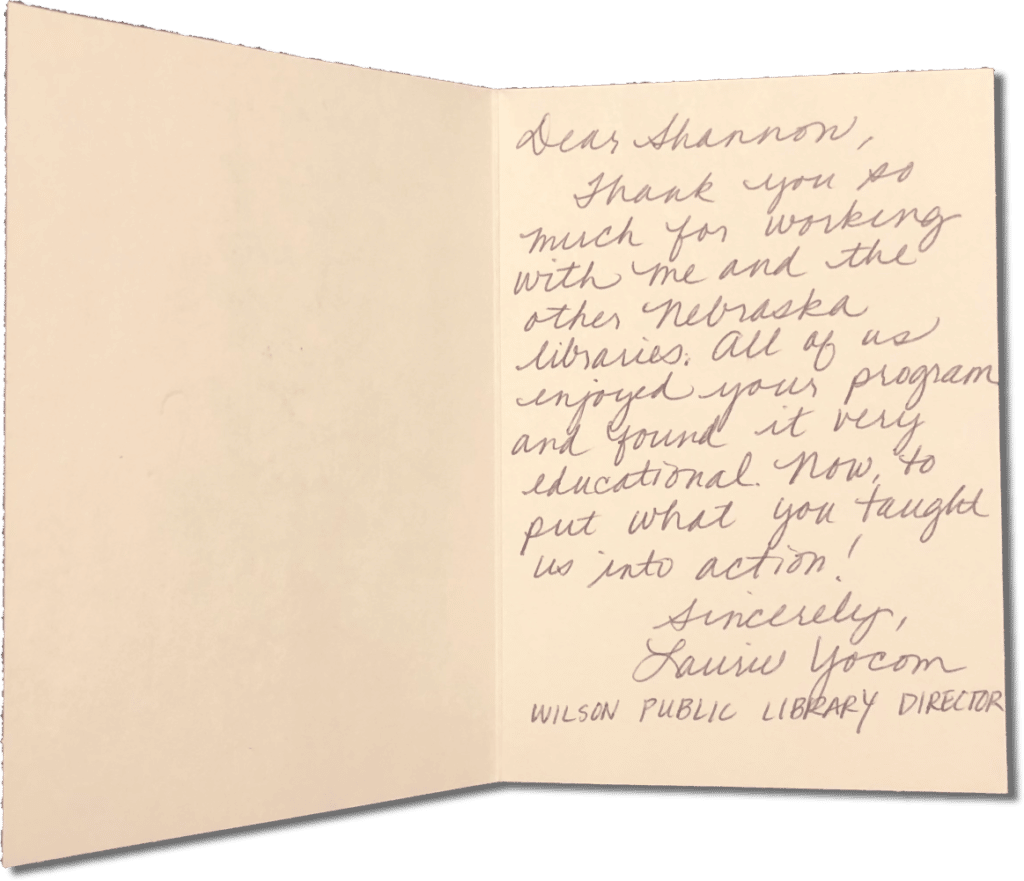 Dear Shannon,
Thank you so
much for working
with me and the
other Nebraska
libraries. All of us
enjoyed your program
and found it very
educational. Now, to
put what you taught
us into action!
Sincerely,
Laurie Yocom
WILSON PUBLIC LIBRARY DIRECTOR